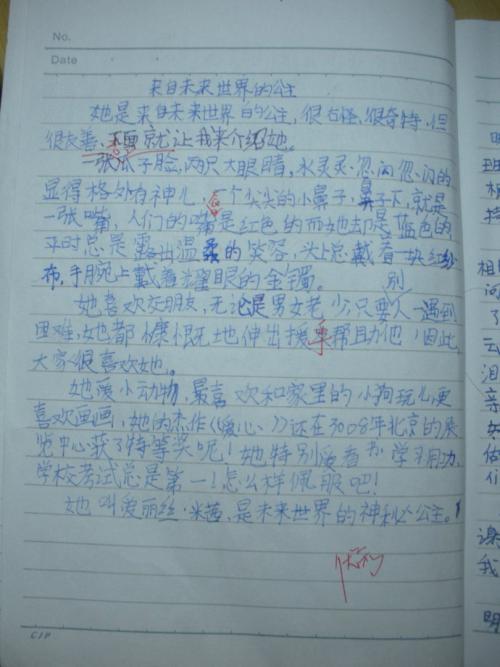 No.
Date
来自未来世界的公主
她是来自未来世界的公主，很古怪、很奇特，但
很友善、下面就让我来介绍她。
张瓜子脸，两只大眼睛，水灵灵，忽闪忽闪的
显得格外有神儿，一个尖尖的小鼻子，鼻子下，就是
一张嘴，人们的嘴是红色的而她却是蓝色的
平时总是露出温柔的笑容，头上总戴着一块红纱
布，手腕上戴着耀眼的金镯。
她喜欢交朋友，无论是男女老少，只要别人遇到
困难，她都慷慨地伸出援手帮助他，因此，
大家很喜欢她。
她爱小动物，最喜欢和家里的小狗玩儿，更
喜欢画画，她的杰作《爱心》还在3008年北京的展
览中心获了特等奖呢！她特别爱看书，学习用功，
学校考试总是第一！怎么样佩服吧！
她叫爱丽丝·米茜，是未来世界的神秘公主。